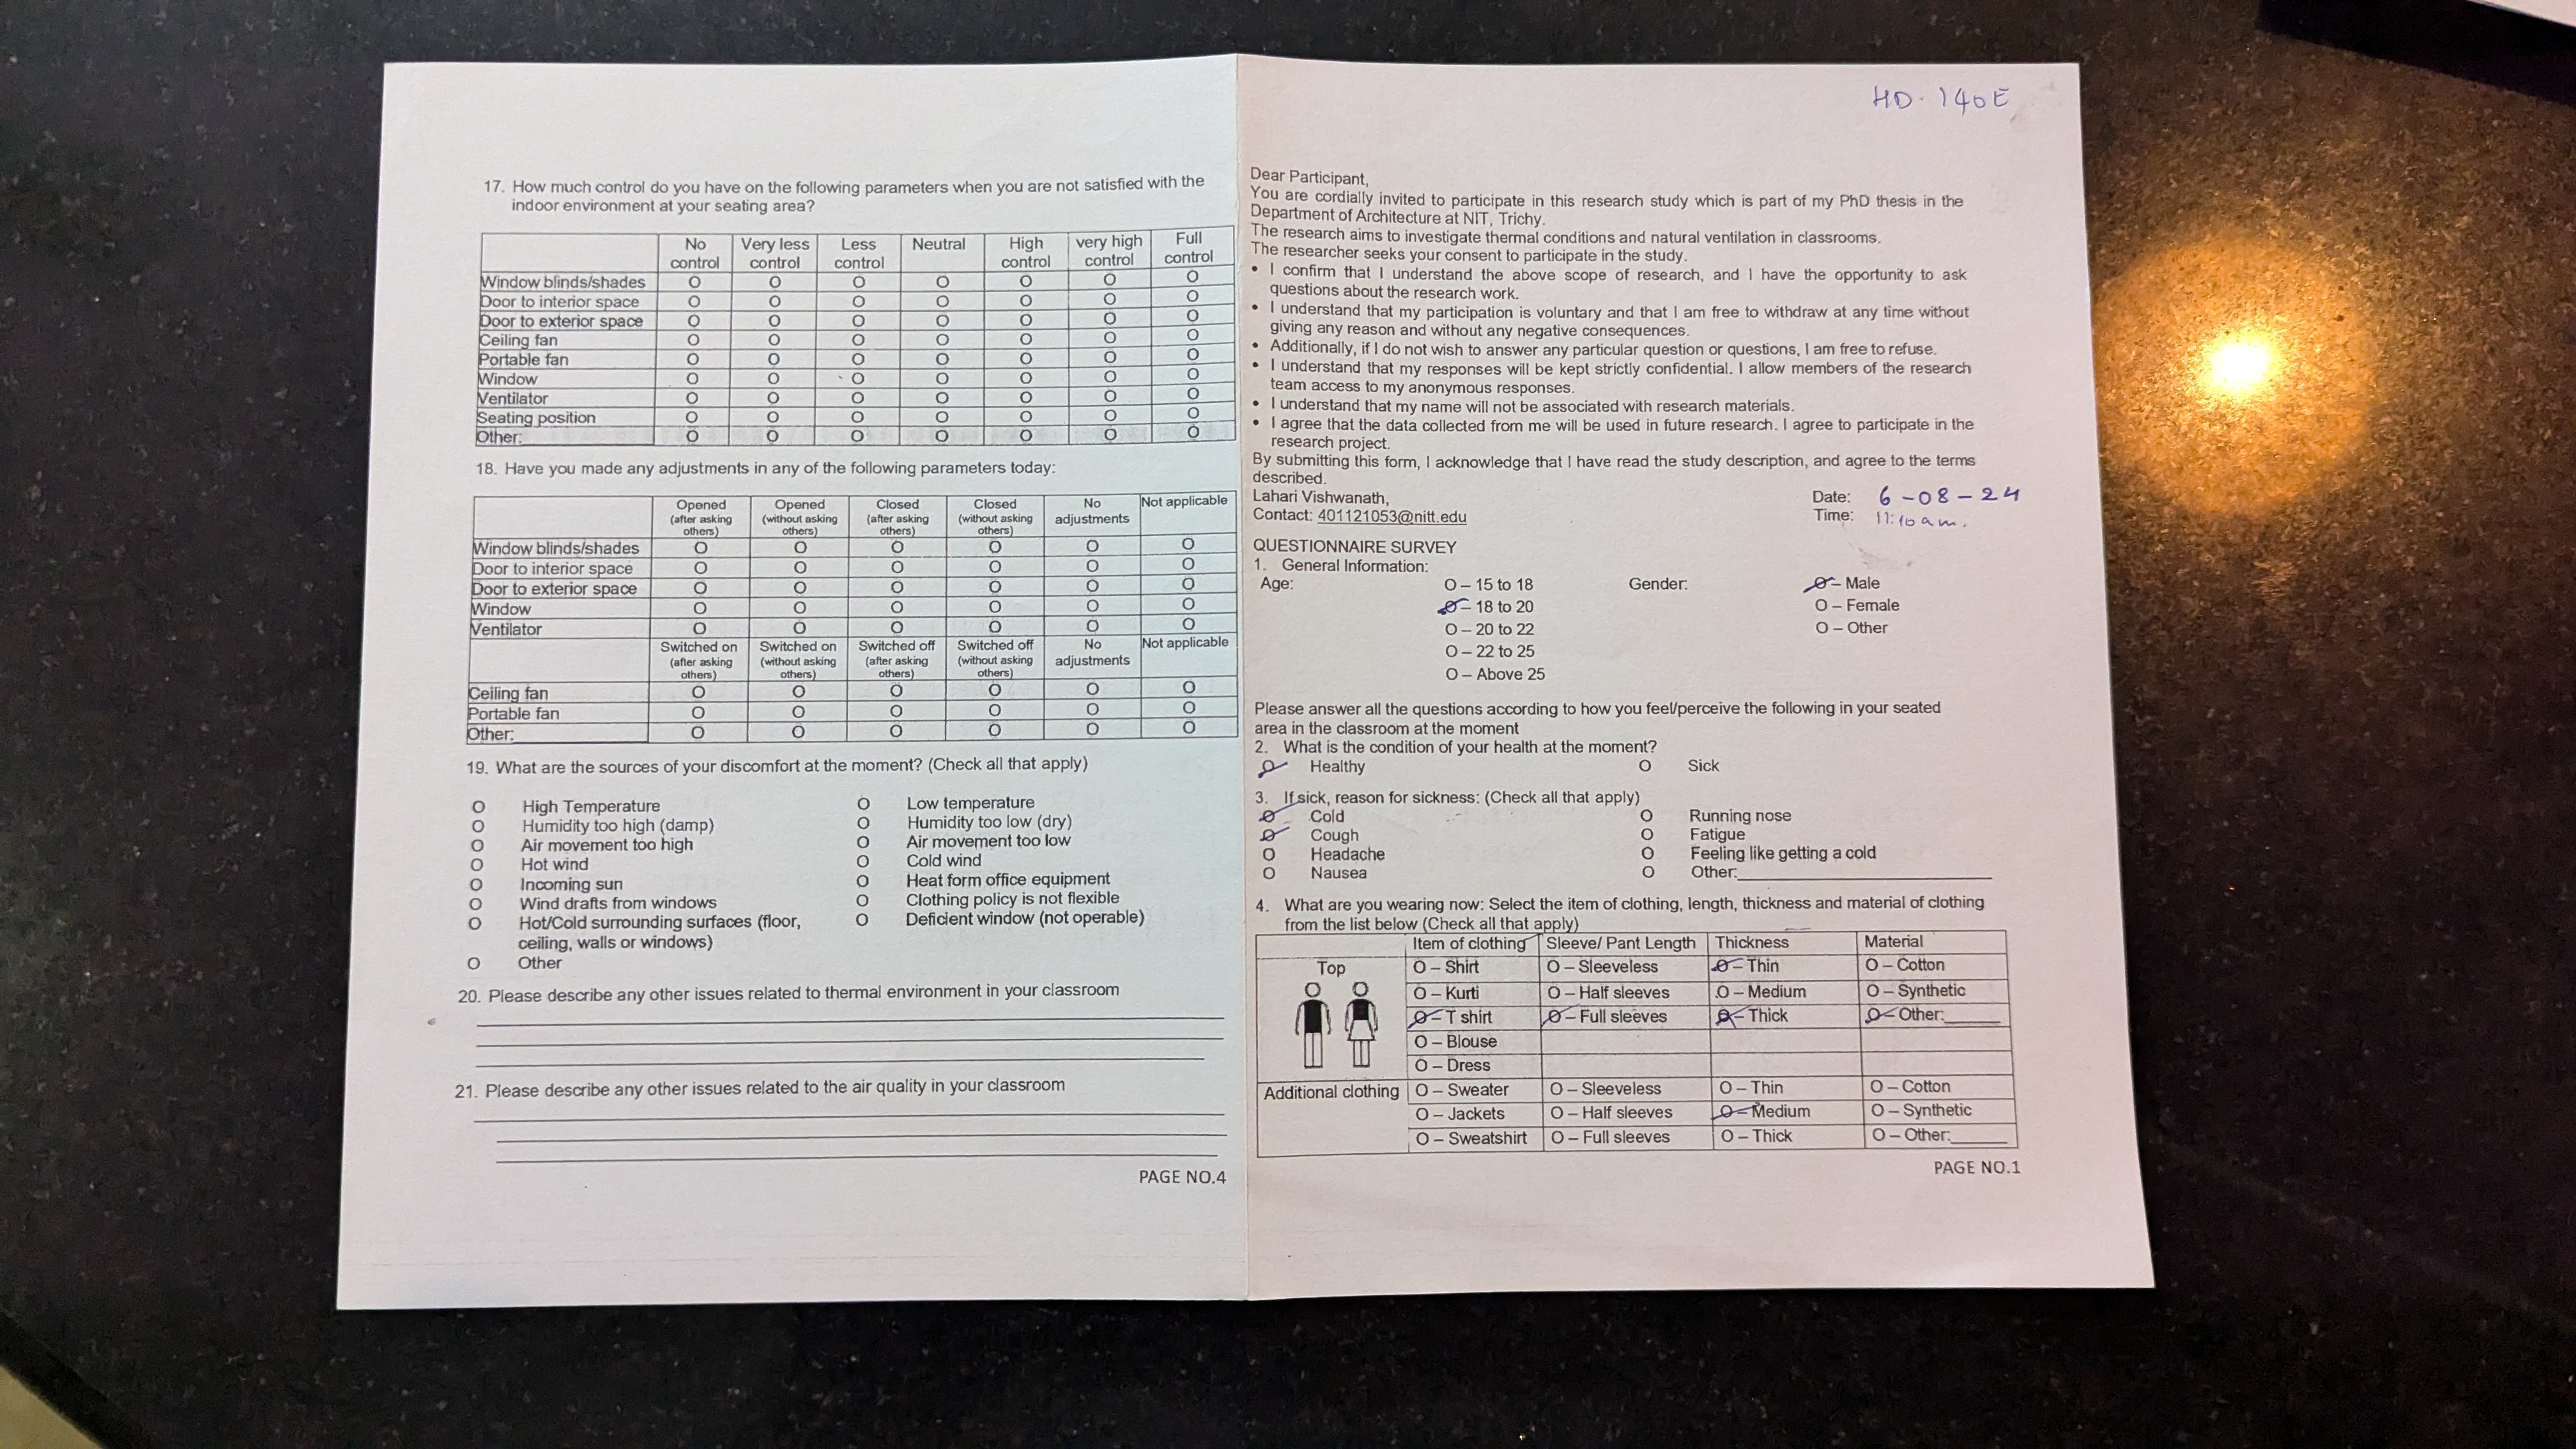 17. How much control do you have on the following parameters when you are not satisfied with the
indoor environment at your seating area?
No control Very less control Less control Neutral High control very high control Full control
Window blinds/shades O O O O O O O
Door to interior space O O O O O O O
Door to exterior space O O O O O O O
Ceiling fan O O O O O O O
Portable fan O O O O O O O
Window O O O O O O O
Ventilator O O O O O O O
Seating position O O O O O O O
Other: O O O O O O O
18. Have you made any adjustments in any of the following parameters today:
Opened (after asking others) Opened (without asking others) Closed (after asking others) Closed (without asking others) No adjustments Not applicable
Window blinds/shades O O O O O O
Door to interior space O O O O O O
Door to exterior space O O O O O O
Window O O O O O O
Ventilator O O O O O O
Switched on (after asking others) Switched on (without asking others) Switched off (after asking others) Switched off (without asking others) No adjustments Not applicable
Ceiling fan O O O O O O
Portable fan O O O O O O
Other: O O O O O O
19. What are the sources of your discomfort at the moment? (Check all that apply)
O High Temperature O Low temperature
O Humidity too high (damp) O Humidity too low (dry)
O Air movement too high O Air movement too low
O Hot wind O Cold wind
O Incoming sun O Heat form office equipment
O Wind drafts from windows O Clothing policy is not flexible
O Hot/Cold surrounding surfaces (floor, O Deficient window (not operable)
ceiling, walls or windows)
O Other
20. Please describe any other issues related to thermal environment in your classroom
21. Please describe any other issues related to the air quality in your classroom
PAGE NO.4
HD. 140E
Dear Participant,
You are cordially invited to participate in this research study which is part of my PhD thesis in the
Department of Architecture at NIT, Trichy.
The research aims to investigate thermal conditions and natural ventilation in classrooms.
The researcher seeks your consent to participate in the study.
• I confirm that I understand the above scope of research, and I have the opportunity to ask
questions about the research work.
• I understand that my participation is voluntary and that I am free to withdraw at any time without
giving any reason and without any negative consequences.
• Additionally, if I do not wish to answer any particular question or questions, I am free to refuse.
• I understand that my responses will be kept strictly confidential. I allow members of the research
team access to my anonymous responses.
• I understand that my name will not be associated with research materials.
• I agree that the data collected from me will be used in future research. I agree to participate in the
research project.
By submitting this form, I acknowledge that I have read the study description, and agree to the terms
described.
Lahari Vishwanath, Date: 6-08-24
Contact: 401121053@nitt.edu Time: 11:10 am.
QUESTIONNAIRE SURVEY
1. General Information:
Age: O – 15 to 18 Gender: O – Male
O – 18 to 20 O – Female
O – 20 to 22 O – Other
O – 22 to 25
O – Above 25
Please answer all the questions according to how you feel/perceive the following in your seated
area in the classroom at the moment
2. What is the condition of your health at the moment?
O Healthy O Sick
3. If sick, reason for sickness: (Check all that apply)
O Cold O Running nose
O Cough O Fatigue
O Headache O Feeling like getting a cold
O Nausea O Other:
4. What are you wearing now: Select the item of clothing, length, thickness and material of clothing
from the list below (Check all that apply)
Item of clothing Sleeve/ Pant Length Thickness Material
Top O – Shirt O – Sleeveless O – Thin O – Cotton
O – Kurti O – Half sleeves O – Medium O – Synthetic
O – T shirt O – Full sleeves O – Thick O – Other:
O – Blouse
O – Dress
Additional clothing O – Sweater O – Sleeveless O – Thin O – Cotton
O – Jackets O – Half sleeves O – Medium O – Synthetic
O – Sweatshirt O – Full sleeves O – Thick O – Other:
PAGE NO.1